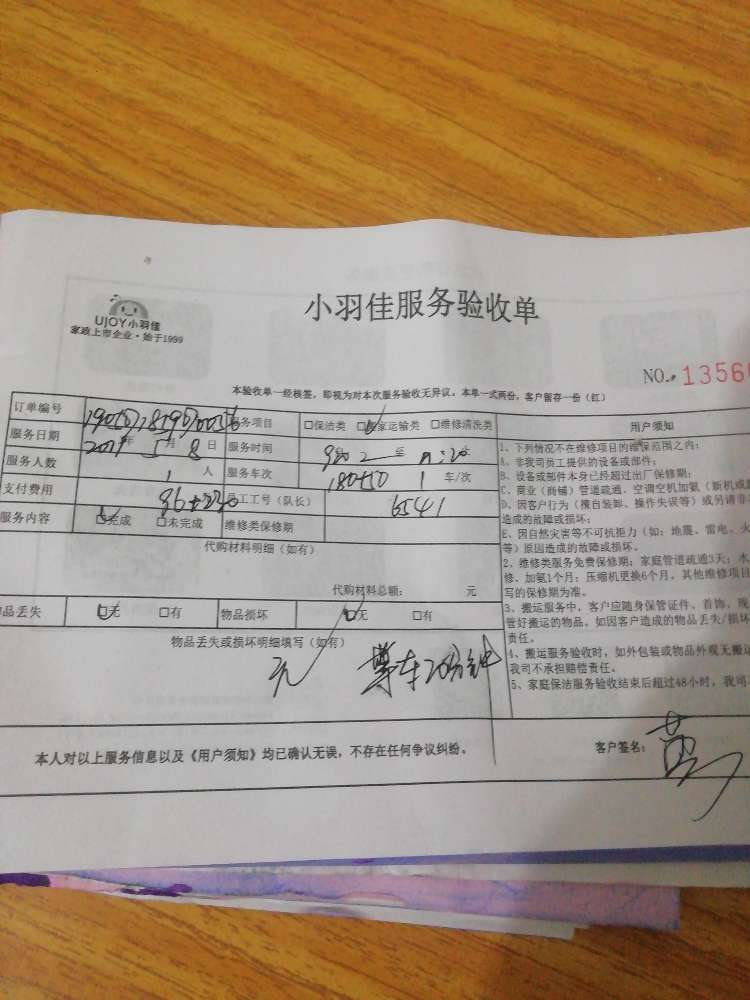 小羽佳服务验收单
UJOY小羽佳
家政上市企业·始于1999
NO. 1356
本验收单一经核签，即视为对本次服务验收无异议。本单一式两份，客户留存一份（红）
订单编号 服务项目 □保洁类 □搬家运输类 □维修清洗类 用户须知
服务日期 2019年5月8日 服务时间 至
服务人数 1 人 服务车次 180+50 1 车/次
支付费用 员工工号（队长） 6541
服务内容 □完成 □未完成 维修类保修期
代购材料明细（如有）
代购材料总额： 元
物品丢失 □无 □有 物品损坏 □无 □有
物品丢失或损坏明细填写（如有）
无 等车20分钟
1、下列情况不在维修项目的维保范围之内：
A、非我司员工提供的设备或部件；
B、设备或部件本身已经超过出厂保修期；
C、商业（商铺）管道疏通、空调空机加氟（新机或
D、因客户行为（擅自装卸、操作失误等）或另请非
造成的故障或损坏；
E、因自然灾害等不可抗拒力（如：地震、雷电、火
等）原因造成的故障或损坏。
2、维修类服务免费保修期：家庭管道疏通3天；水
修、加氟1个月；压缩机更换6个月，其他维修项目
写的保修期为准。
3、搬运服务中，客户应随身保管证件、首饰、现
管好搬运的物品。如因客户造成的物品丢失/损坏
责任。
4、搬运服务验收时，如外包装或物品外观无搬运
我司不承担赔偿责任。
5、家庭保洁服务验收结束后超过48小时，我司
本人对以上服务信息以及《用户须知》均已确认无误，不存在任何争议纠纷。
客户签名：